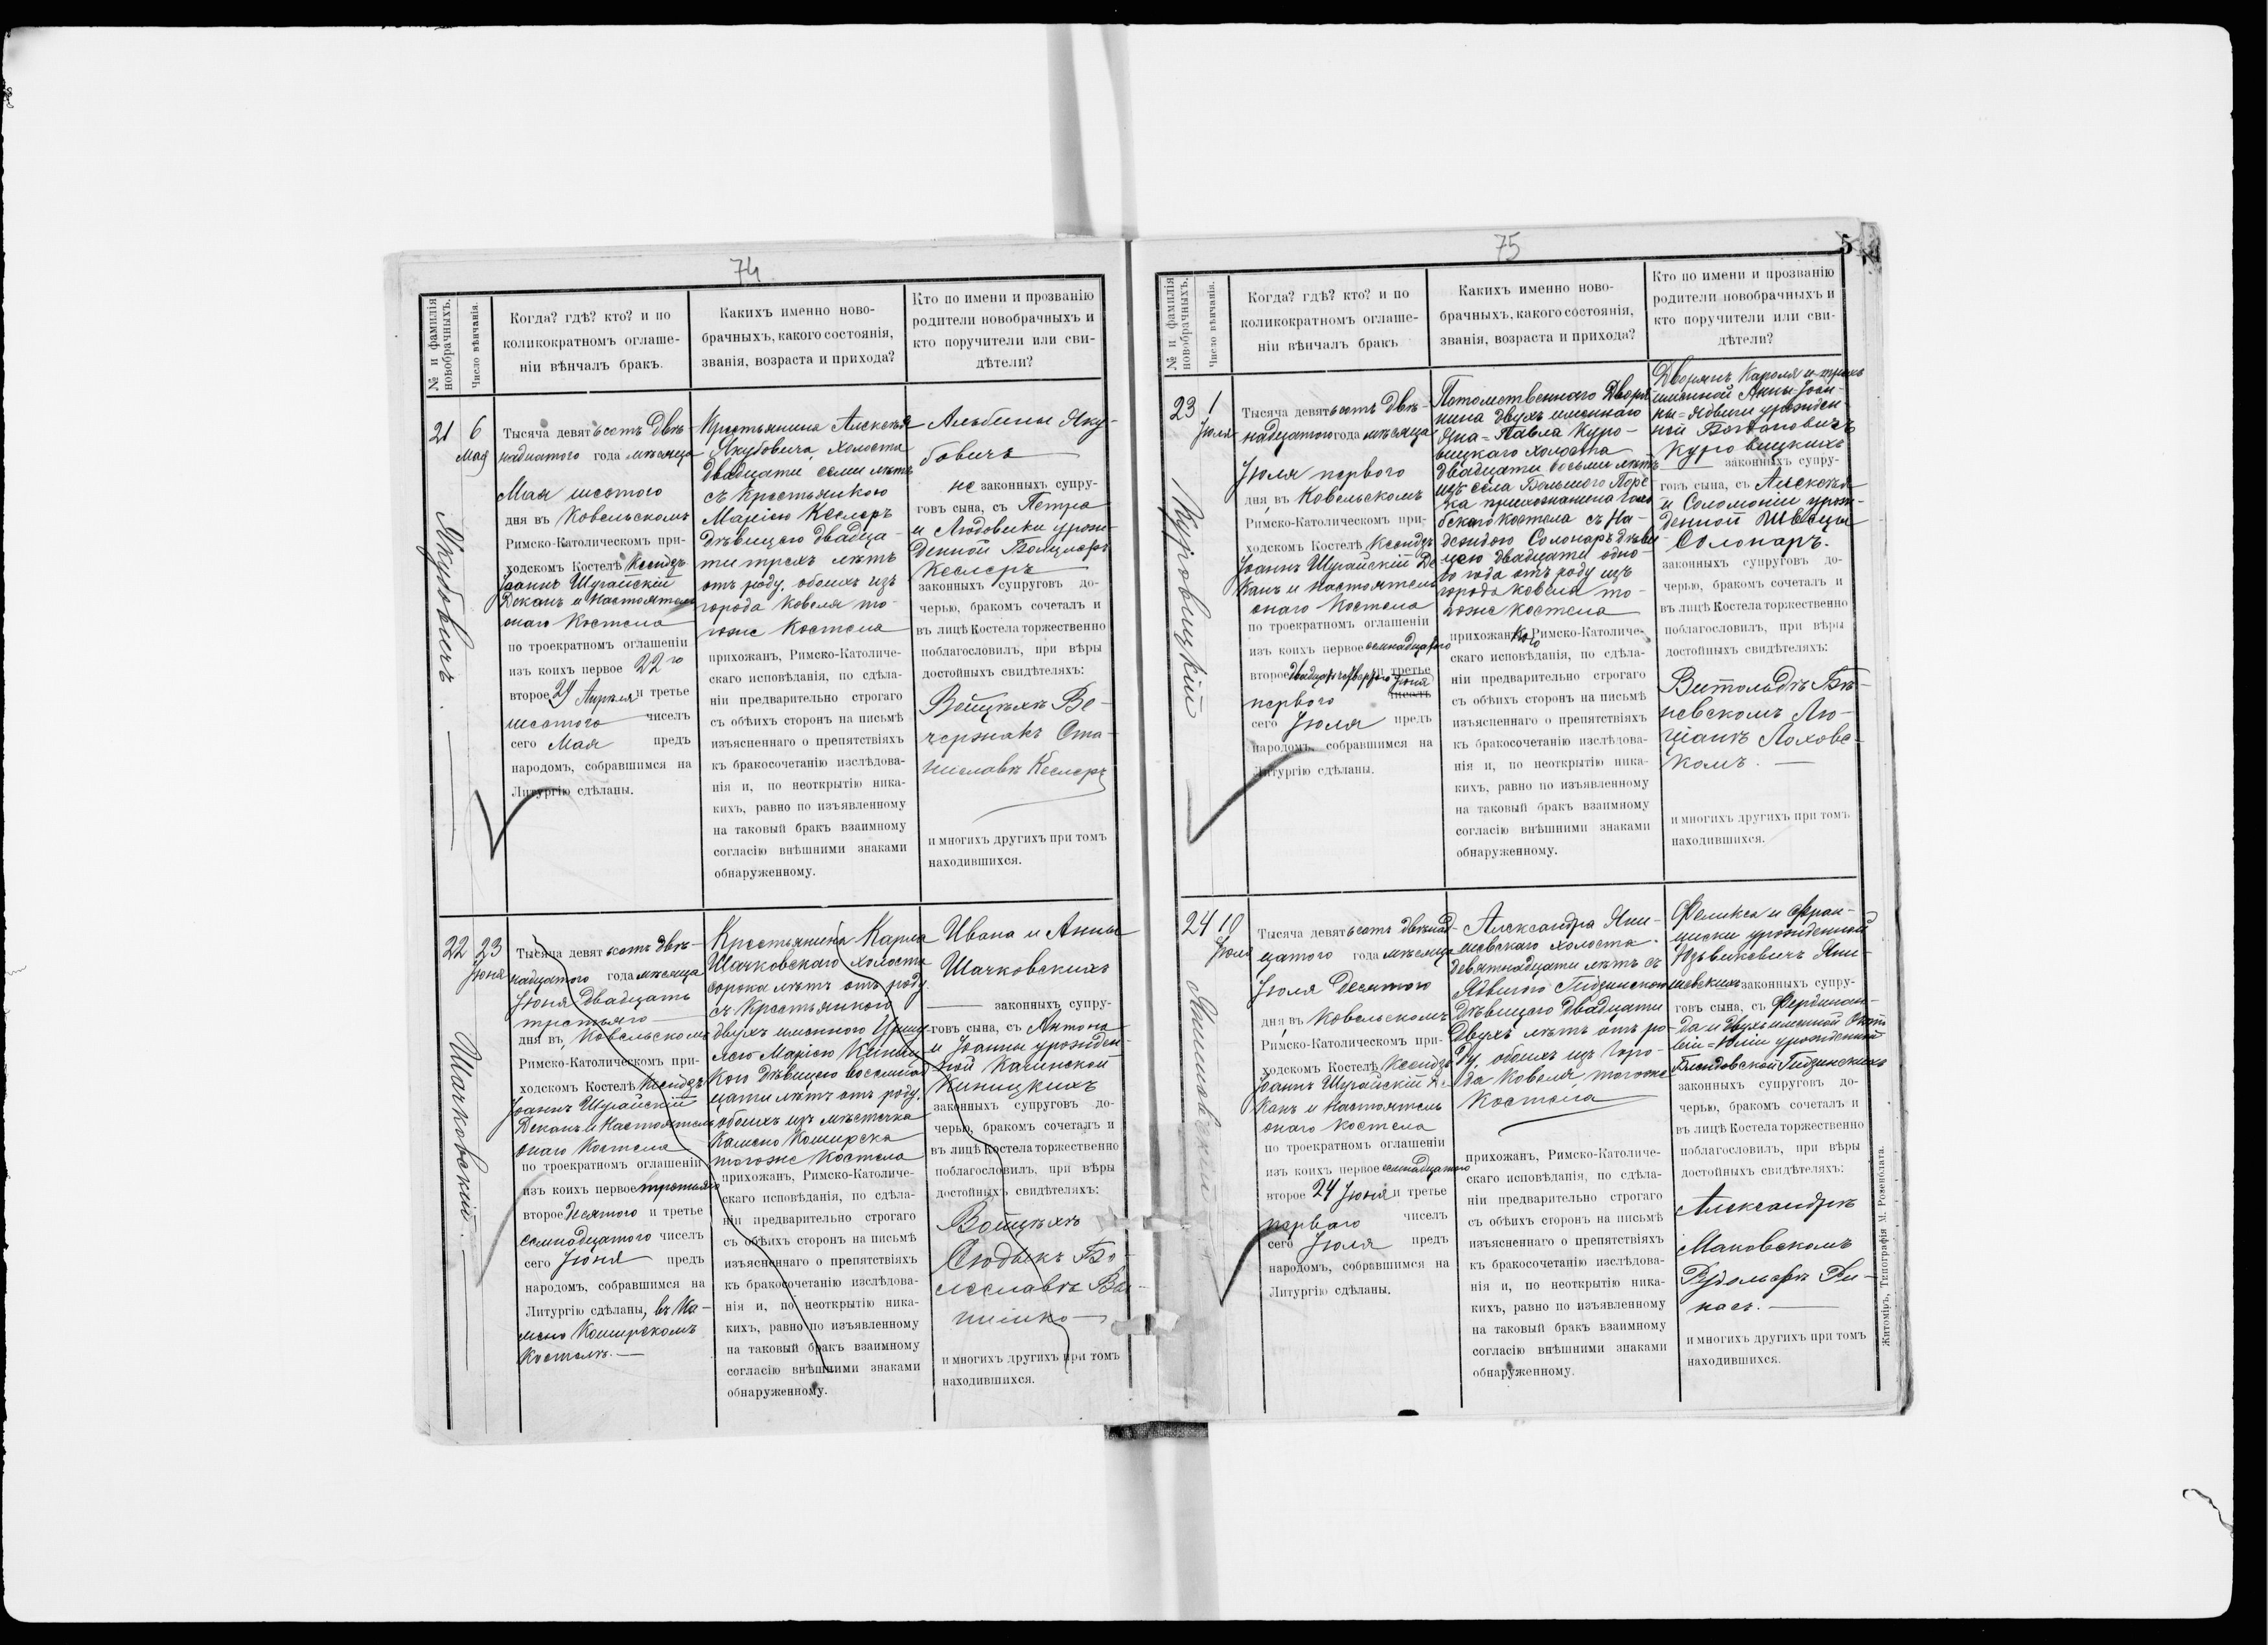 74
№ и фамилія новобрачныхъ.
Число вѣнчанія.
Когда? гдѣ? кто? и по
коликократномъ оглаше-
ніи вѣнчалъ бракъ.
Какихъ именно ново-
брачныхъ, какого состоянія,
званія, возраста и прихода?
Кто по имени и прозванію
родители новобрачныхъ и
кто поручители или сви-
дѣтели?
21
6
Мая
Якубовичъ.
Тысяча девятьсотъ двѣ-
надцатого года мѣсяца
Мая шестого
дня въ Ковельскомъ
Римско-Католическомъ при-
ходскомъ Костелѣ Ксендзъ
Іоаннъ Шурайскій
Деканъ и Настоятель
онаго Костела
по троекратномъ оглашеніи
изъ коихъ первое 22го
второе 29 Апрѣля и третье
шестого чиселъ
сего Мая предъ
народомъ, собравшимся на
Литургію сдѣланы.
Крестьянина Алексѣя
Якубовича, холоста
двадцати семи лѣтъ
съ крестьянкою
Маріею Кеслеръ
дѣвицею двадца-
ти трехъ лѣтъ
отъ роду, обоихъ изъ
города Ковеля то-
гоже Костела
прихожанъ, Римско-Католиче-
скаго исповѣданія, по сдѣла-
ніи предварительно строгаго
съ обѣихъ сторонъ на письмѣ
изъясненнаго о препятствіяхъ
къ бракосочетанію изслѣдова-
нія и, по неоткрытію ника-
кихъ, равно по изъявленному
на таковый бракъ взаимному
согласію внѣшними знаками
обнаруженному.
Альбины Яку-
бовичъ
не законныхъ супру-
говъ сына, съ Петра
и Людовики урож-
денной
Кеслеръ
законныхъ супруговъ до-
черью, бракомъ сочеталъ и
въ лицѣ Костела торжественно
поблагословилъ, при вѣры
достойныхъ свидѣтеляхъ:
Войцѣхѣ Ве-
чержакъ Ста-
ниславѣ Кеслеръ
и многихъ другихъ при томъ
находившихся.
22
23
Іюня
Шачковскій.
Тысяча девятьсотъ двѣ-
надцатого года мѣсяца
Іюня двадцать
третьяго
дня въ Ковельскомъ
Римско-Католическомъ при-
ходскомъ Костелѣ Ксендзъ
Іоаннъ Шурайскій
Деканъ и Настоятель
онаго Костела
по троекратномъ оглашеніи
изъ коихъ первое третьяго
второе десятого и третье
семнадцатого чиселъ
сего Іюня предъ
народомъ, собравшимся на
Литургію сдѣланы, въ Ка-
мено Коширскомъ
Костелѣ.
Крестьянина Карла
Шачковскаго холоста
сорока лѣтъ отъ роду
съ Крестьянкою
двухъ именною Уршу-
лею Маріею Киниц-
кою дѣвицею восемнад-
цати лѣтъ отъ роду,
обоихъ изъ мѣстечка
Камено Коширска
тогоже Костела
прихожанъ, Римско-Католиче-
скаго исповѣданія, по сдѣла-
ніи предварительно строгаго
съ обѣихъ сторонъ на письмѣ
изъясненнаго о препятствіяхъ
къ бракосочетанію изслѣдова-
нія и, по неоткрытію ника-
кихъ, равно по изъявленному
на таковый бракъ взаимному
согласію внѣшними знаками
обнаруженному.
Ивана и Анны
Шачковскихъ
законныхъ супру-
говъ сына, съ Антона
и Іоанны урожден-
ной Качинской
Киницкихъ
законныхъ супруговъ до-
черью, бракомъ сочеталъ и
въ лицѣ Костела торжественно
поблагословилъ, при вѣры
достойныхъ свидѣтеляхъ:
Войцѣхѣ
Бо-
леславѣ
и многихъ другихъ при томъ
находившихся.
75
5
№ и фамилія новобрачныхъ.
Число вѣнчанія.
Когда? гдѣ? кто? и по
коликократномъ оглаше-
ніи вѣнчалъ бракъ
Какихъ именно ново-
брачныхъ, какого состоянія,
званія, возраста и прихода?
Кто по имени и прозванію
родители новобрачныхъ и
кто поручители или сви-
дѣтели?
23
1
Іюля
Куровицкій
Тысяча девятьсотъ двѣ-
надцатого года мѣсяца
Іюля первого
дня, въ Ковельскомъ
Римско-Католическомъ при-
ходскомъ Костелѣ Ксендзъ
Іоаннъ Шурайскій Де-
канъ и настоятель
онаго Костела
по троекратномъ оглашеніи
изъ коихъ первое семнадцатого
второе двадцать четвертого Іюня и третье
первого чиселъ
сего Іюля предъ
народомъ, собравшимся на
Литургію сдѣланы.
Потомственнаго Дворя-
нина двухъ именнаго
Яна=Павла Куро-
вицкаго холоста
двадцати восьми лѣтъ
изъ села Большого Порс-
ка прихожанина Голо-
бскаго костела съ На-
деждою Солонаръ дѣви-
цею двадцати одно-
го года отъ роду изъ
города Ковеля то-
гоже костела
прихожанкою Римско-Католиче-
скаго исповѣданія, по сдѣла-
ніи предварительно строгаго
съ обѣихъ сторонъ на письмѣ
изъясненнаго о препятствіяхъ
къ бракосочетанію изслѣдова-
нія и, по неоткрытію ника-
кихъ, равно по изъявленному
на таковый бракъ взаимному
согласію внѣшними знаками
обнаруженному.
Дворянъ Кароля и трехъ
именной Анны=Іоан-
ны=Ядвиги урожден-
ной Богдановичъ
Куровицкихъ
законныхъ супру-
говъ сына, съ Алексѣя
и Соломоніи урож-
денной Швецъ
Солонаръ.
законныхъ супруговъ до-
черью, бракомъ сочеталъ и
въ лицѣ Костела торжественно
поблагословилъ, при вѣры
достойныхъ свидѣтеляхъ:
Витольдѣ
Лю-
ціанѣ Лоховс-
комъ.
и многихъ другихъ при томъ
находившихся.
24
10
Іюля
Янишевскій
Тысяча девятьсотъ двѣнад-
цатого года мѣсяца
Іюля десятого
дня, въ Ковельскомъ
Римско-Католическомъ при-
ходскомъ Костелѣ Ксендзъ
Іоаннъ Шурайскій Де-
канъ и Настоятель
онаго костела
по троекратномъ оглашеніи
изъ коихъ первое семнадцатого
второе 24 Іюня и третье
первого чиселъ
сего Іюля предъ
народомъ, собравшимся на
Литургію сдѣланы.
Александра Яни-
шевскаго холоста
девятнадцати лѣтъ съ
Ядвигою Гидзинскою
дѣвицею двадцати
двухъ лѣтъ отъ ро-
ду, обоихъ изъ горо-
да Ковеля, тогоже
Костела
прихожанъ, Римско-Католиче-
скаго исповѣданія, по сдѣла-
ніи предварительно строгаго
съ обѣихъ сторонъ на письмѣ
изъясненнаго о препятствіяхъ
къ бракосочетанію изслѣдова-
нія и, по неоткрытію ника-
кихъ, равно по изъявленному
на таковый бракъ взаимному
согласію внѣшними знаками
обнаруженному.
Феликса и Фран-
циски урожденной
Юзвикевичъ Яни-
шевскихъ законныхъ супру-
говъ сына, съ Фердинан-
да и двухъ именной Окта-
віи=Юліи урожденной
Гидзинскихъ
законныхъ супруговъ до-
черью, бракомъ сочеталъ и
въ лицѣ Костела торжественно
поблагословилъ, при вѣры
достойныхъ свидѣтеляхъ:
Александрѣ
Маковскомъ
Рудольфѣ
и многихъ другихъ при томъ
находившихся.
Житоміръ, Типографія М. Розенблата.